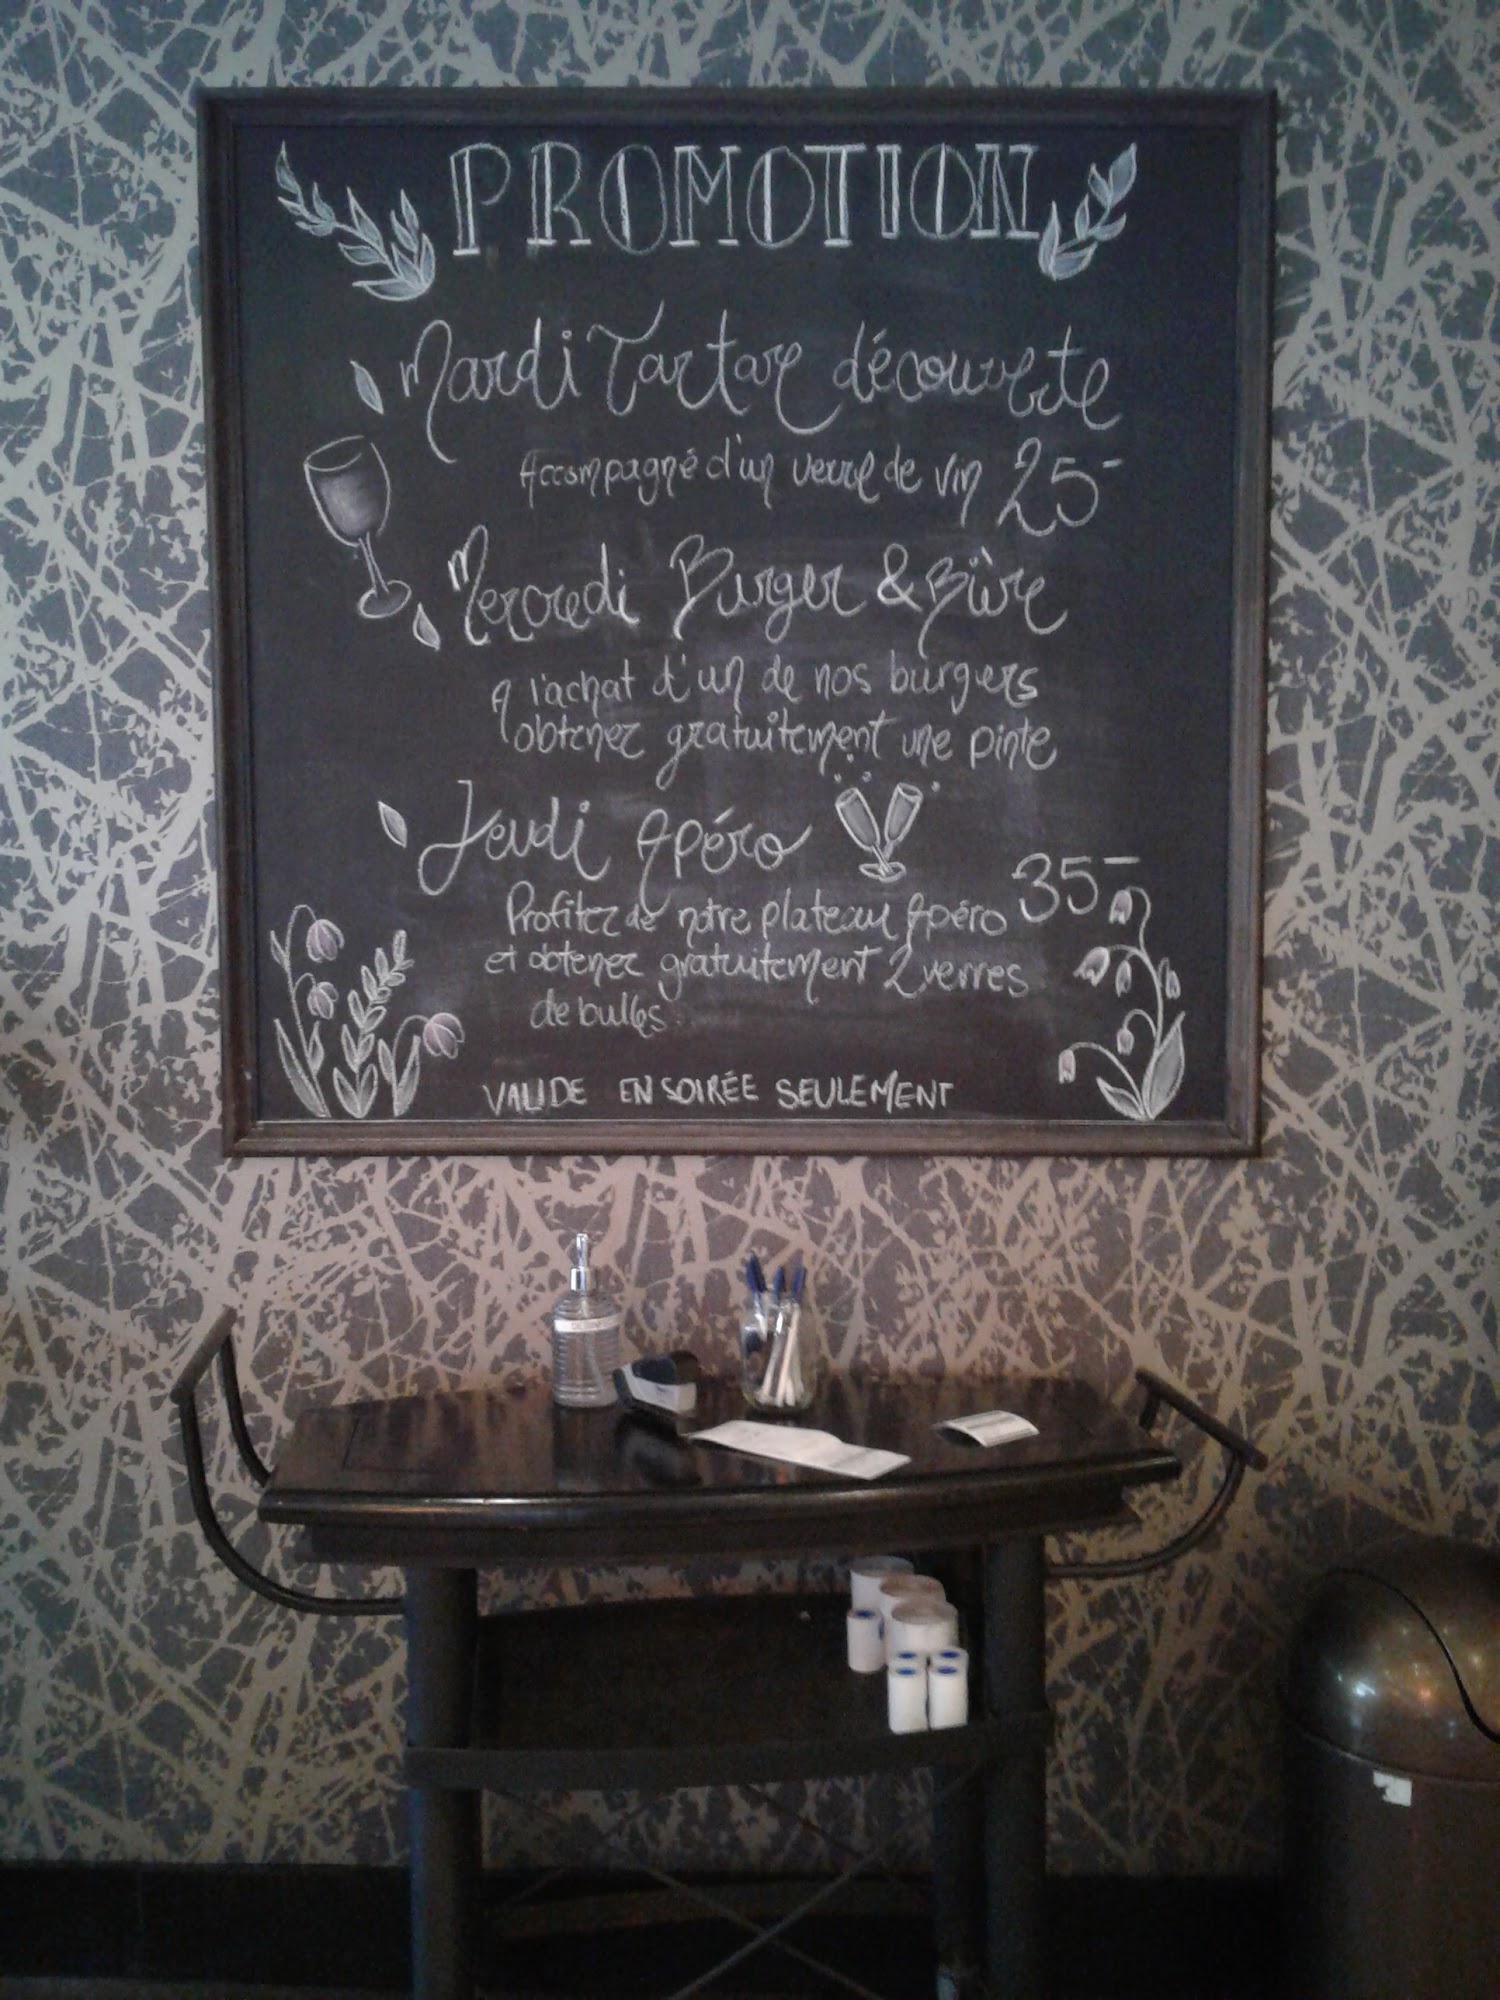 PROMOTION
Mardi Tartare découverte
Accompagné d'un verre de vin 25-
Mercredi Burger & Bière
A l'achat d'un de nos burgers
obtenez gratuitement une pinte
Jeudi Apéro
35-
Profitez de notre plateau Apéro
et obtenez gratuitement 2 verres
de bulles.
VALIDE EN SOIRÉE SEULEMENT